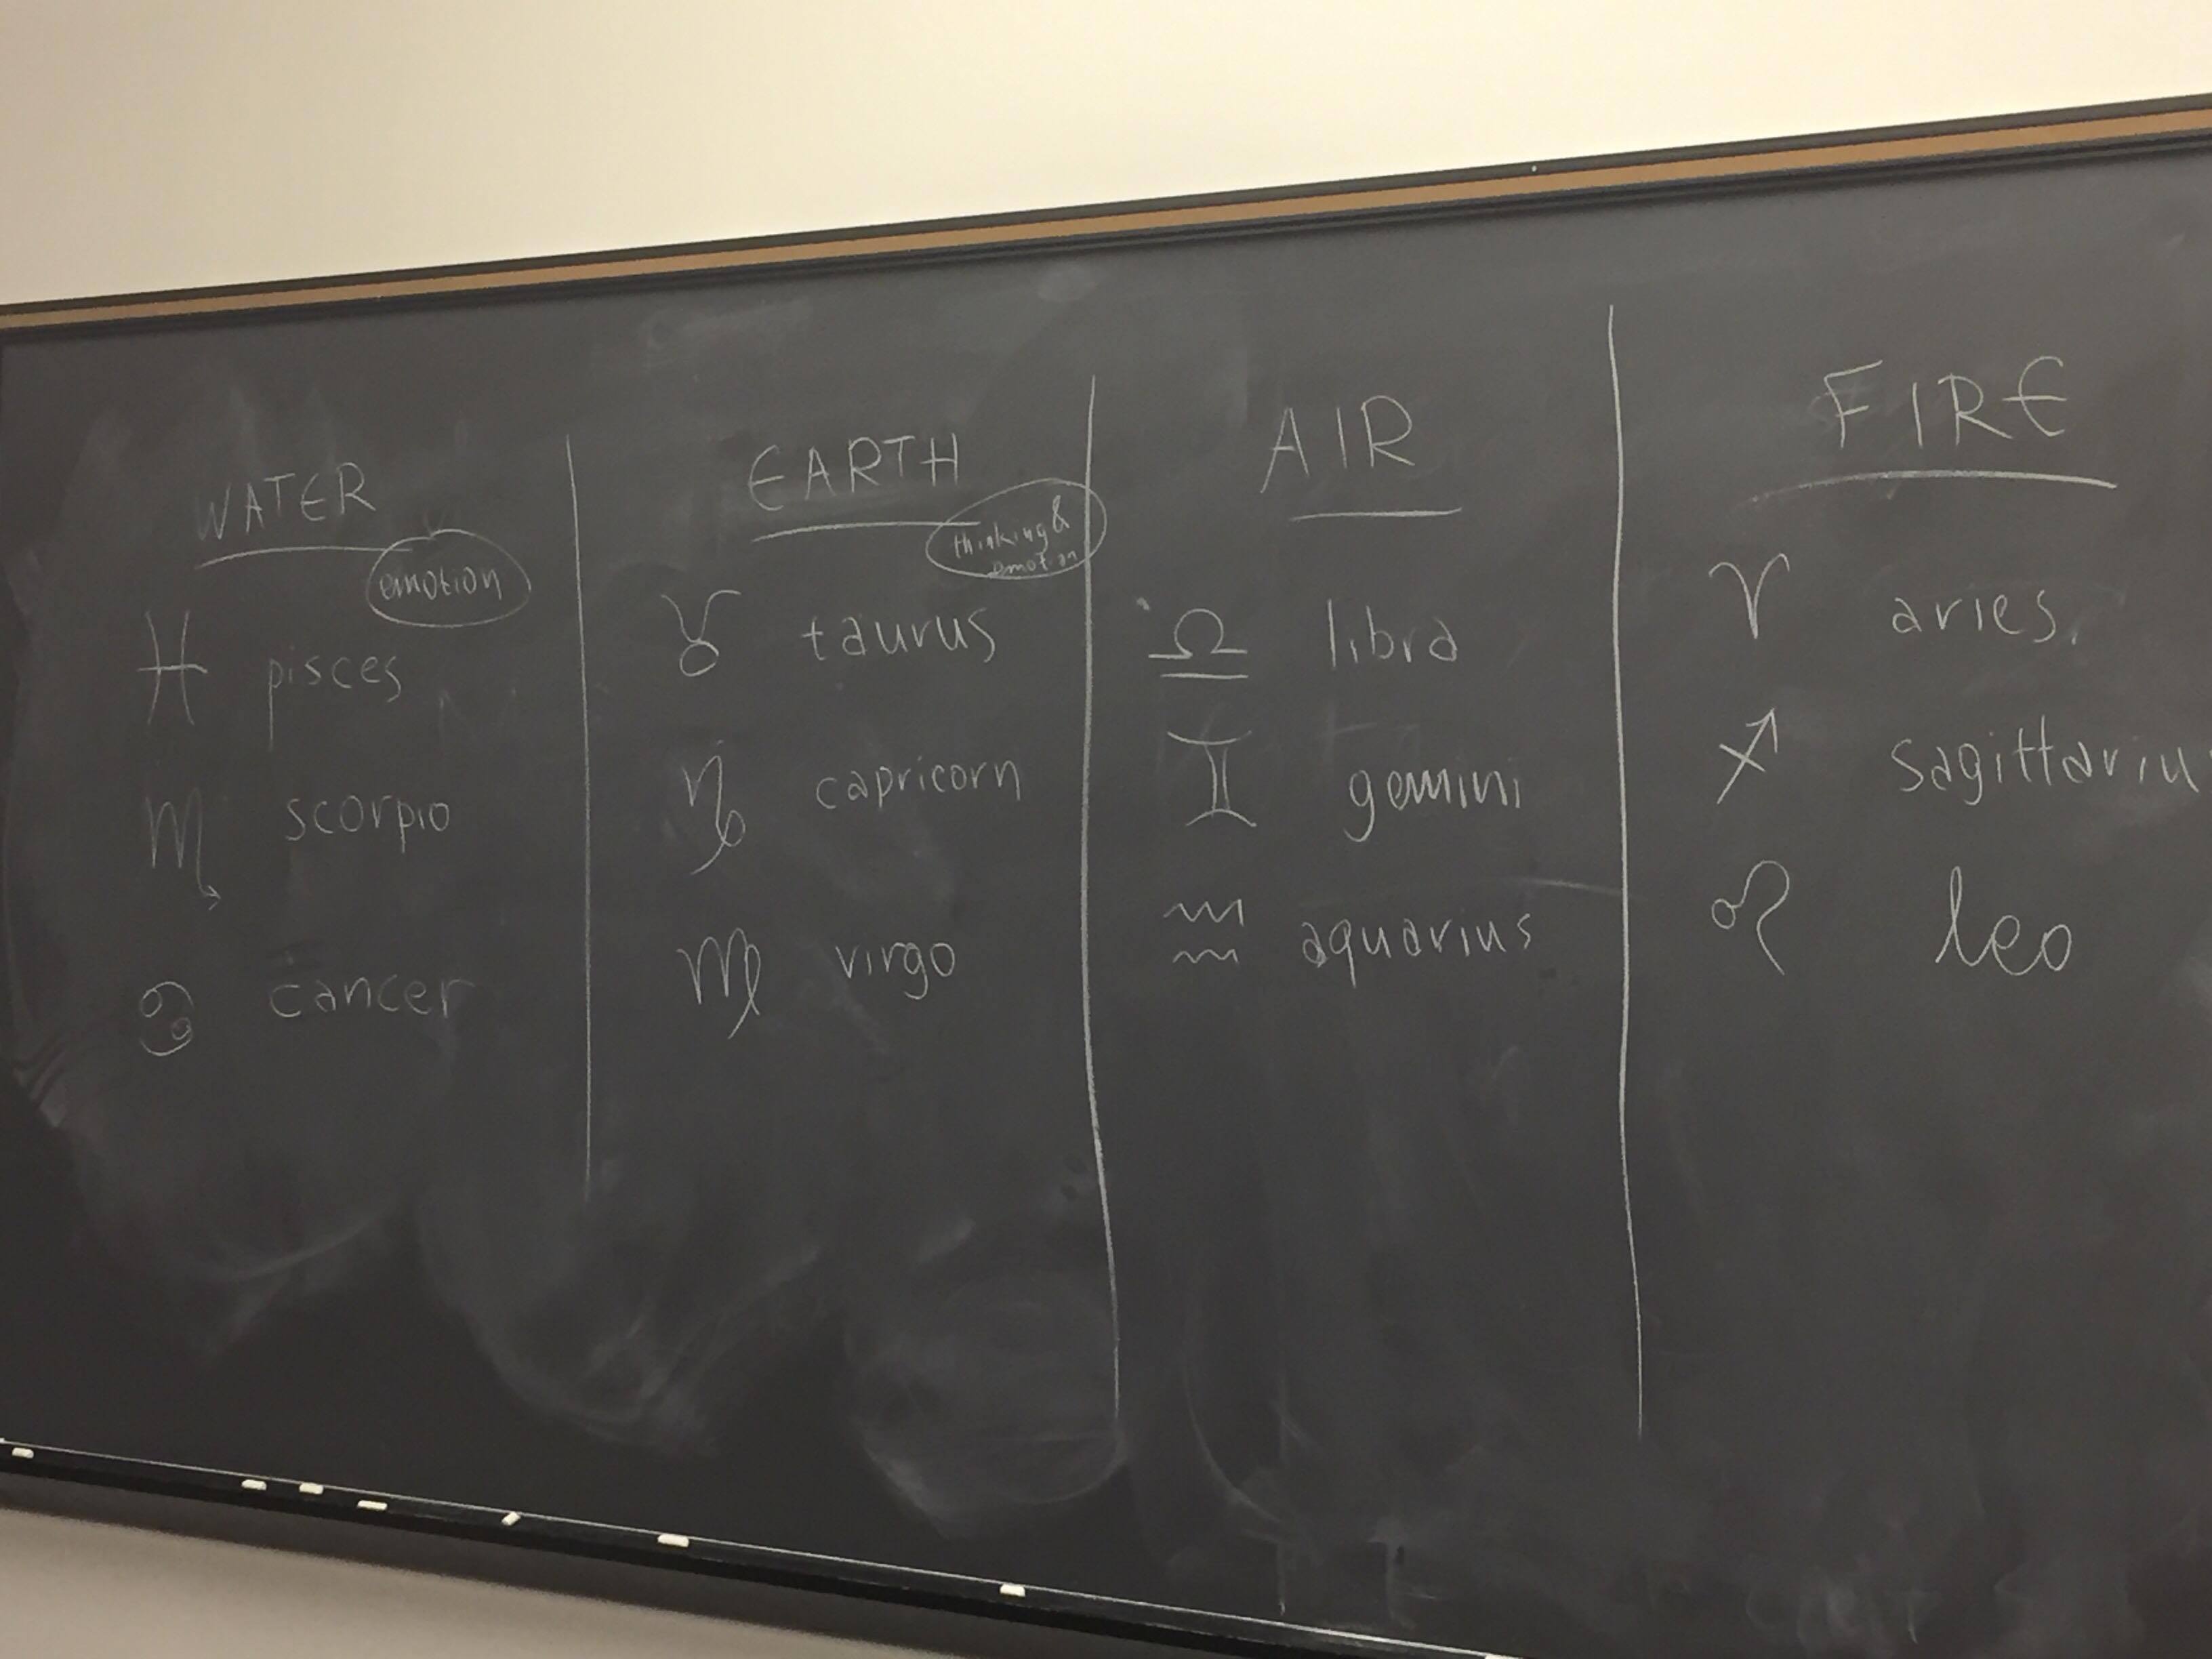 WATER
emotion
♓ pisces
♏ scorpio
♋ cancer
EARTH
thinking &
emotion
♉ taurus
♑ capricorn
♍ virgo
AIR
♎ libra
♊ gemini
♒ aquarius
FIRE
♈ aries
♐ sagittariu
♌ leo